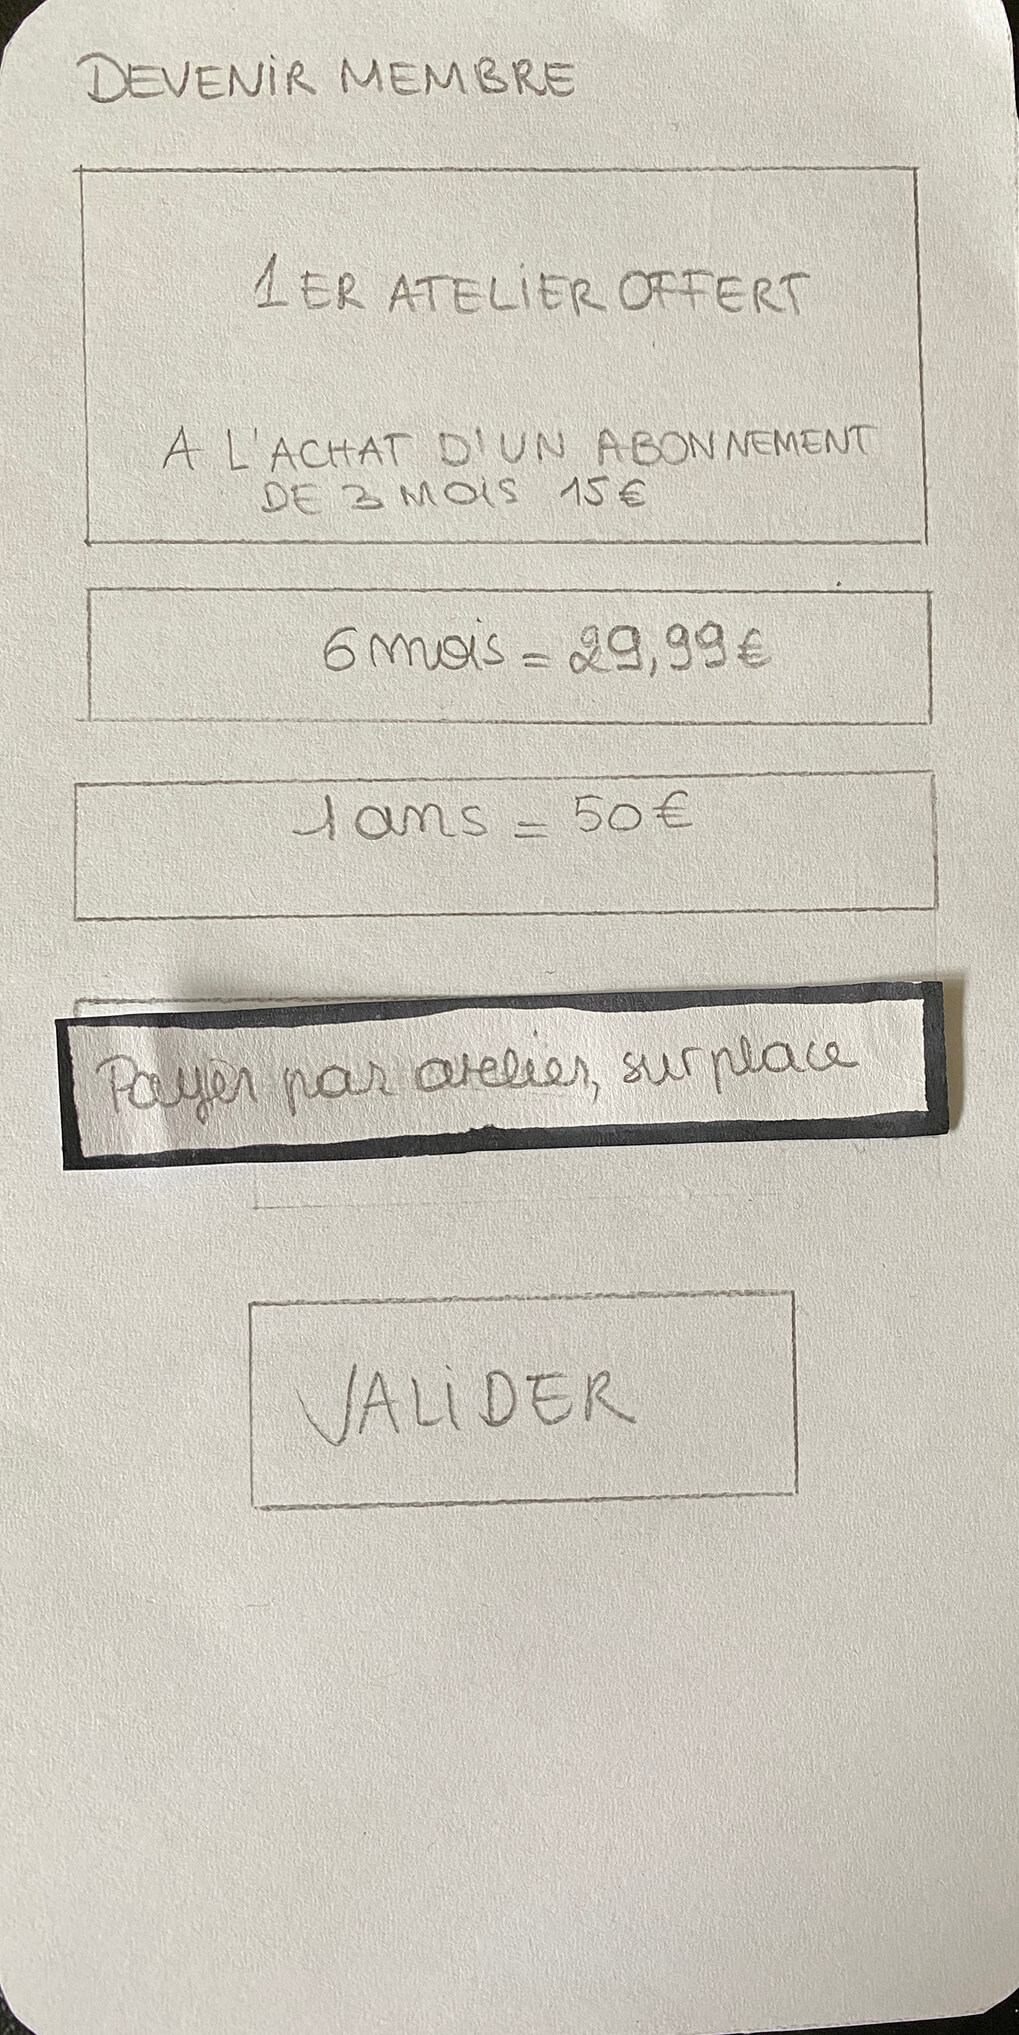 DEVENIR MEMBRE
1ER ATELIER OFFERT
A L'ACHAT D'UN ABONNEMENT
DE 3 MOIS 15€
6 mois = 29,99€
1 ans = 50€
Payer par atelier, sur place
VALIDER